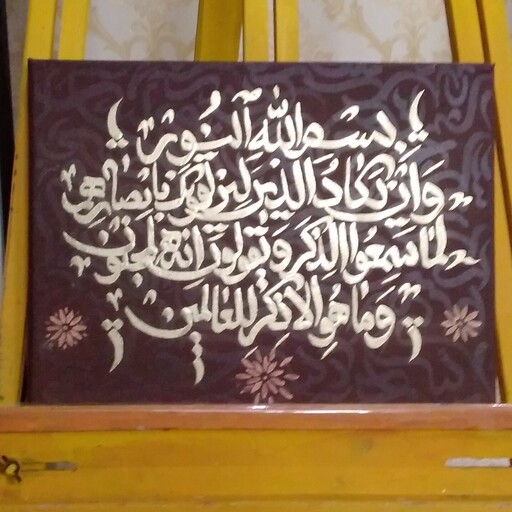 بسم الله النور
وَإِن يَكَادُ الذين ليزلقونك بابصارهم
لما سمعوا الذكر و يقولون انه لمجنون
وَمَا هُوَ الا ذكر للعالمين